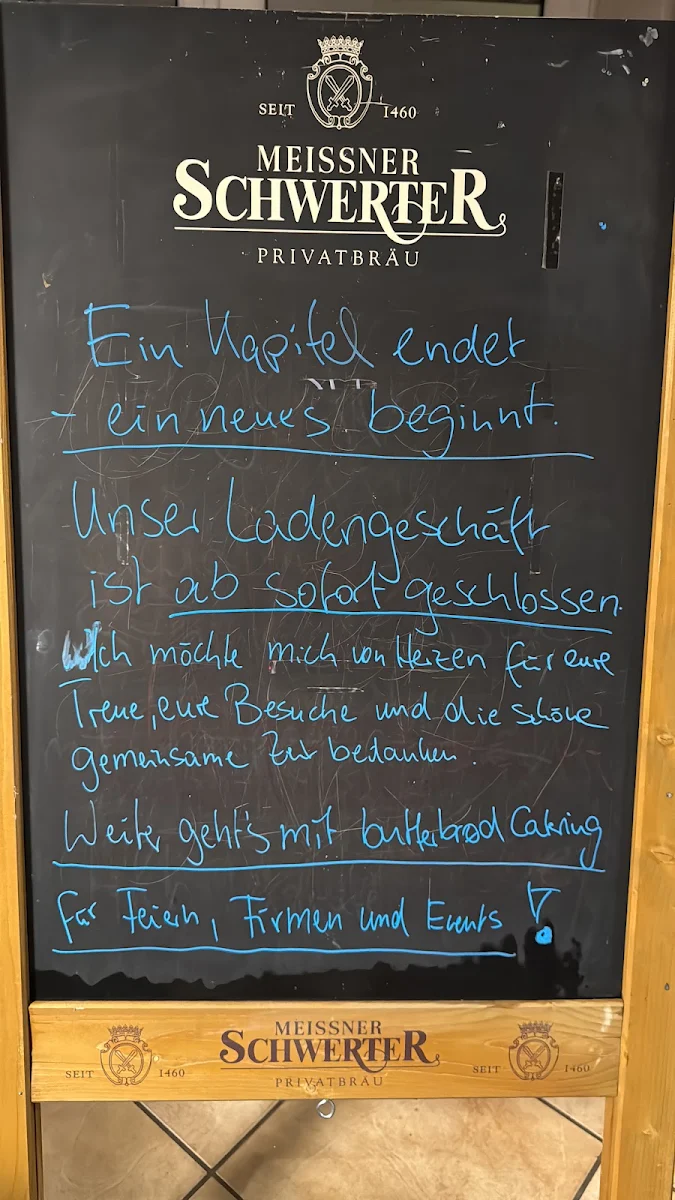 SEIT 1460
MEISSNER
SCHWERTER
PRIVATBRÄU
Ein Kapitel endet
- ein neues beginnt.
Unser Ladengeschäft
ist ab sofort geschlossen.
Ich möchte mich von Herzen für eure
Treue, eure Besuche und die schöne
gemeinsame Zeit bedanken.
Weiter geht's mit butterbrod Catering
für Feiern, Firmen und Events!
SEIT 1460
MEISSNER
SCHWERTER
PRIVATBRÄU
SEIT 1460